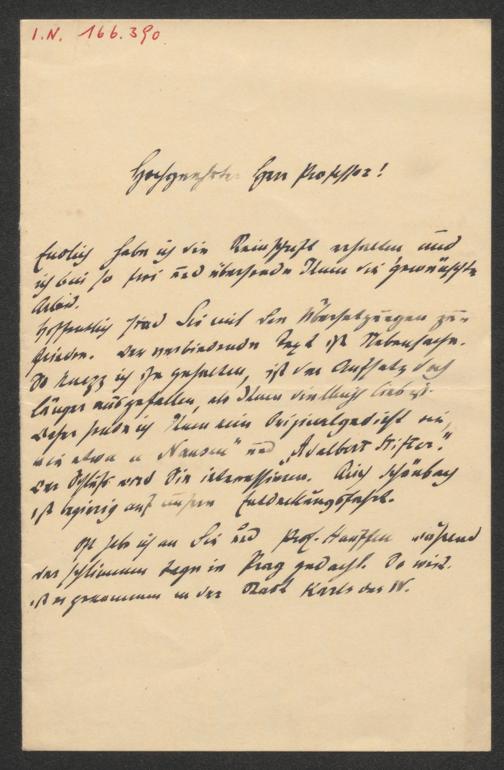 I.N. 166.390
Hochgeehrter Herr Professor!
Endlich habe ich die Reinschrift erhalten und
ich bin so frei und übersende Ihnen die gewünschte
Arbeit.
Hoffentlich sind Sie mit den Übersetzungen zu-
frieden. Der verbindende Text ist Nebensache.
So kurz ich ihn gehalten, ist der Aufsatz doch
länger ausgefallen, als Ihnen vielleicht lieb ist.
ich Ihnen ein Originalgedicht ein,
wie etwa "Nansen" und "Adalbert Stifter".
Der Schluß wird Sie interessieren. Auch Schönbach
ist begierig auf unsere Entdeckungsfahrt.
Oft hab ich an Sie und Prof. Hauffen während
der schlimmen Tage in Prag gedacht. So weit
ist es gekommen in der Stadt Karls des IV.